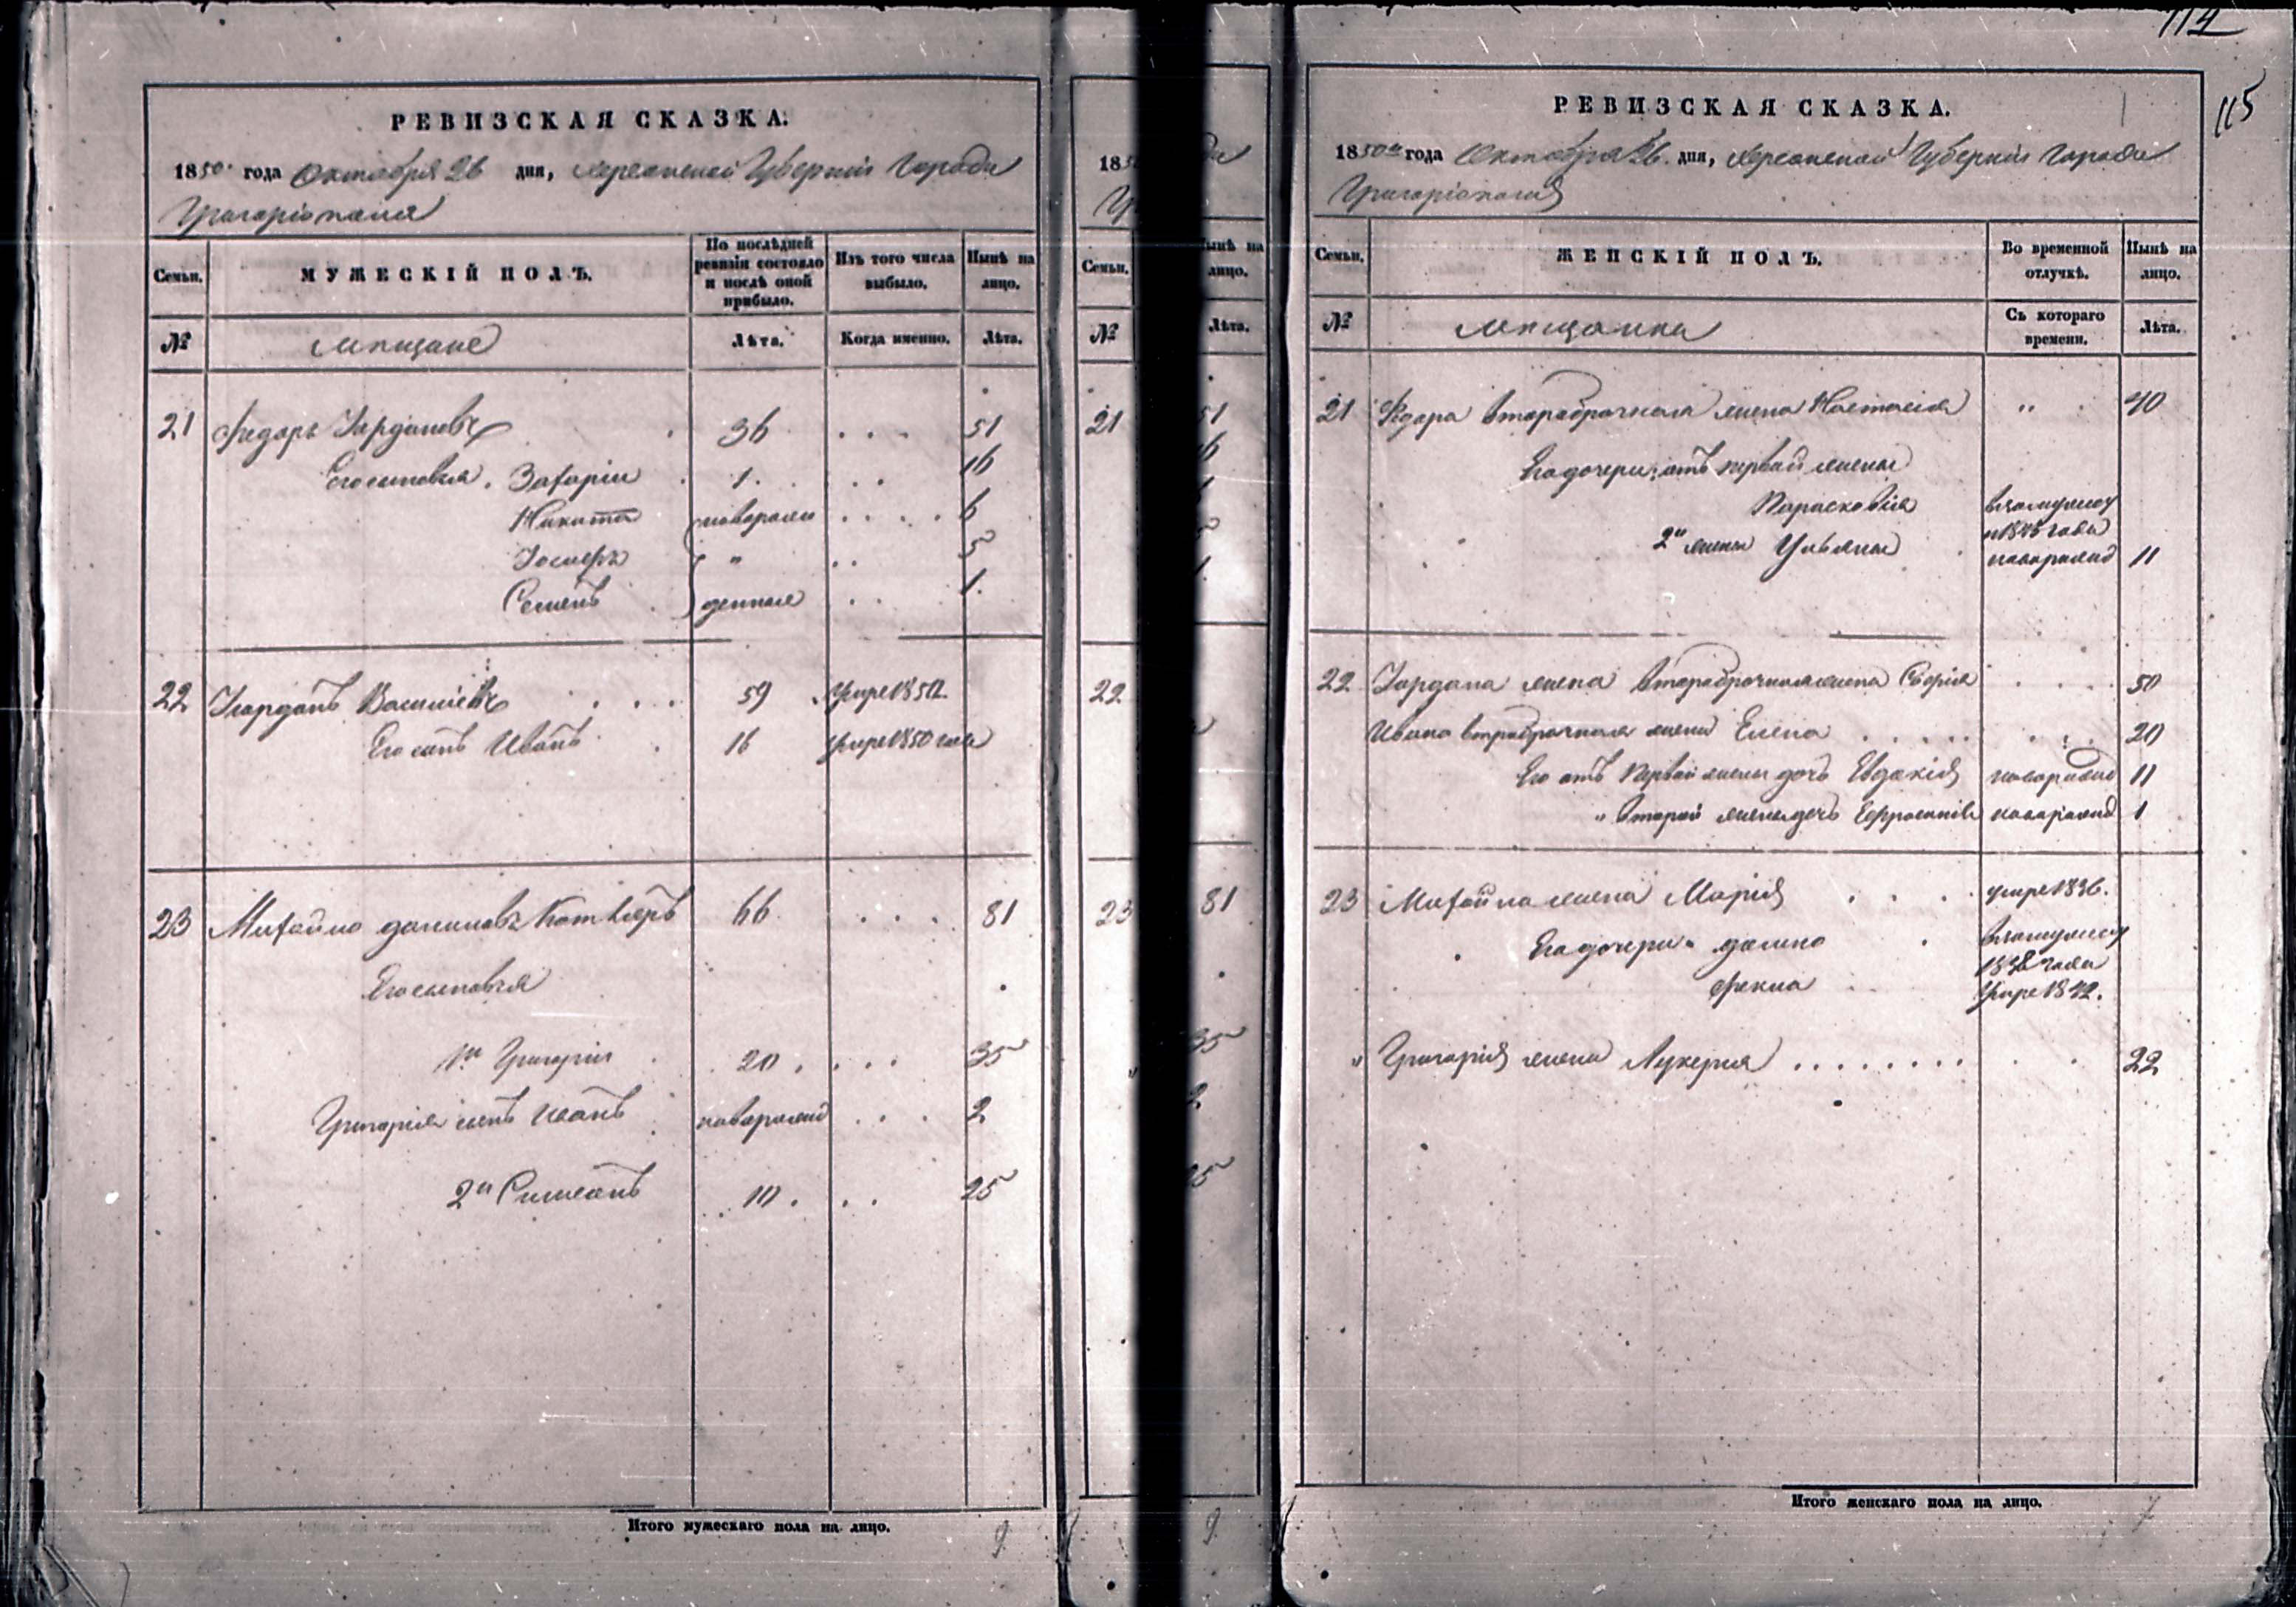 РЕВИЗСКАЯ СКАЗКА.
1850 года Октября 26 дня, Херсонской Губерніи Города
Григоріополя
Семьи. МУЖЕСКІЙ ПОЛЪ. По послѣдней ревизіи состояло и послѣ оной прибыло. Изъ того числа выбыло. Нынѣ на лицо.
№ Мещане Лѣта. Когда именно. Лѣта.
21 Федоръ Іордановъ 36 51
Его сыновья Захарій 1 16
Никита новорож 6
Іосифъ " 5
Семенъ денные 1
22 Іорданъ Василіевъ 59 умре 1850
Его сынъ Иванъ 16 умре 1850 года
23 Михайло Даниловъ 66 81
Его сыновья
1й Григорій 20 35
Григорія сынъ Иванъ новорожд 2
2й Симеонъ 10 25
Итого мужескаго пола на лицо. 9
185
Семьи. Нынѣ на лицо.
№ Лѣта.
21 51
22
23 81
35
2
25
9
114
115
РЕВИЗСКАЯ СКАЗКА.
1850го года Октября 26 дня, Херсонской Губерніи Города
Григоріополя
Семьи. ЖЕНСКІЙ ПОЛЪ. Во временной отлучкѣ. Нынѣ на лицо.
№ Мещанки Съ котораго времени. Лѣта.
21 Федора второбрачная жена Настасія " 40
Его дочери: отъ первой жены
Парасковія взамужеству
года
2й жены Ульяна новорожд 11
22 Іордана жена второбрачная жена Софія 50
Ивана второбрачная жена Елена 20
Его отъ первой жены дочь Евдокія новорожд 11
" второй жены дочь Ефросинія новорожд 1
23 Михайла жена Марія умре 1836.
Его дочери взамужеству
года
Фекла умре 1842.
" Григорія жена Лукерія 22
Итого женскаго пола на лицо. 7